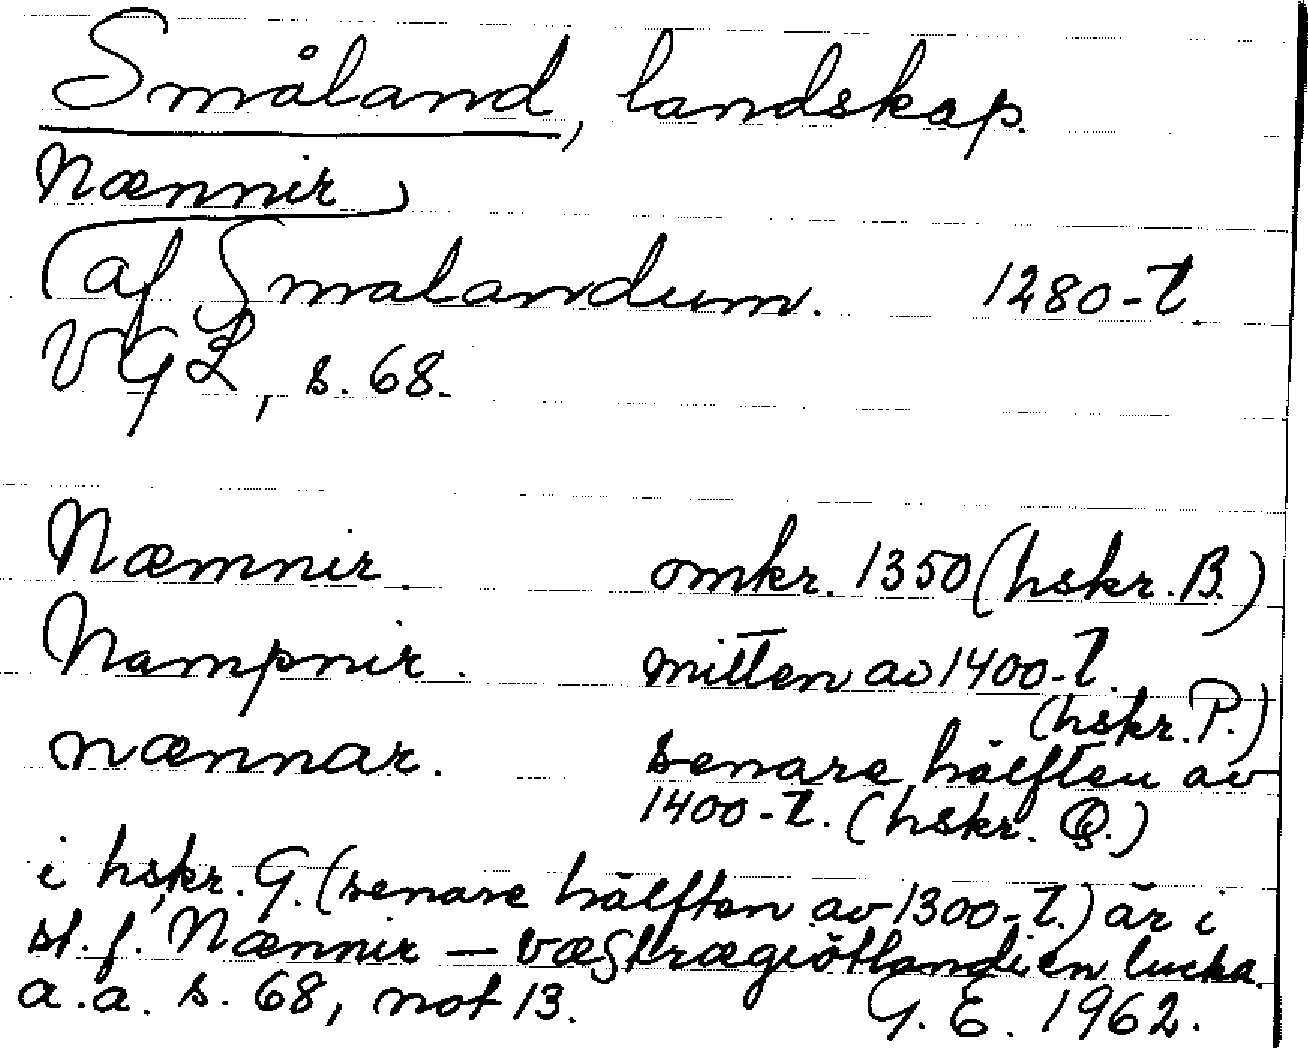 Småland, landskap.
Nænnir
(af Smalandum. 1280-t.
VGL, s. 68.
Næmnir. omkr. 1350 (hskr. B.)
Nampnir. mitten av 1400-t.
(hskr. P.)
nænnar. senare hälften av
1400-t. (hskr. Q.)
i hskr. G. (senare hälften av 1300-t.) är i
st. f. Nænnir — væstrægiötlandi en lucka.
a.a. s. 68, not 13. G. E. 1962.